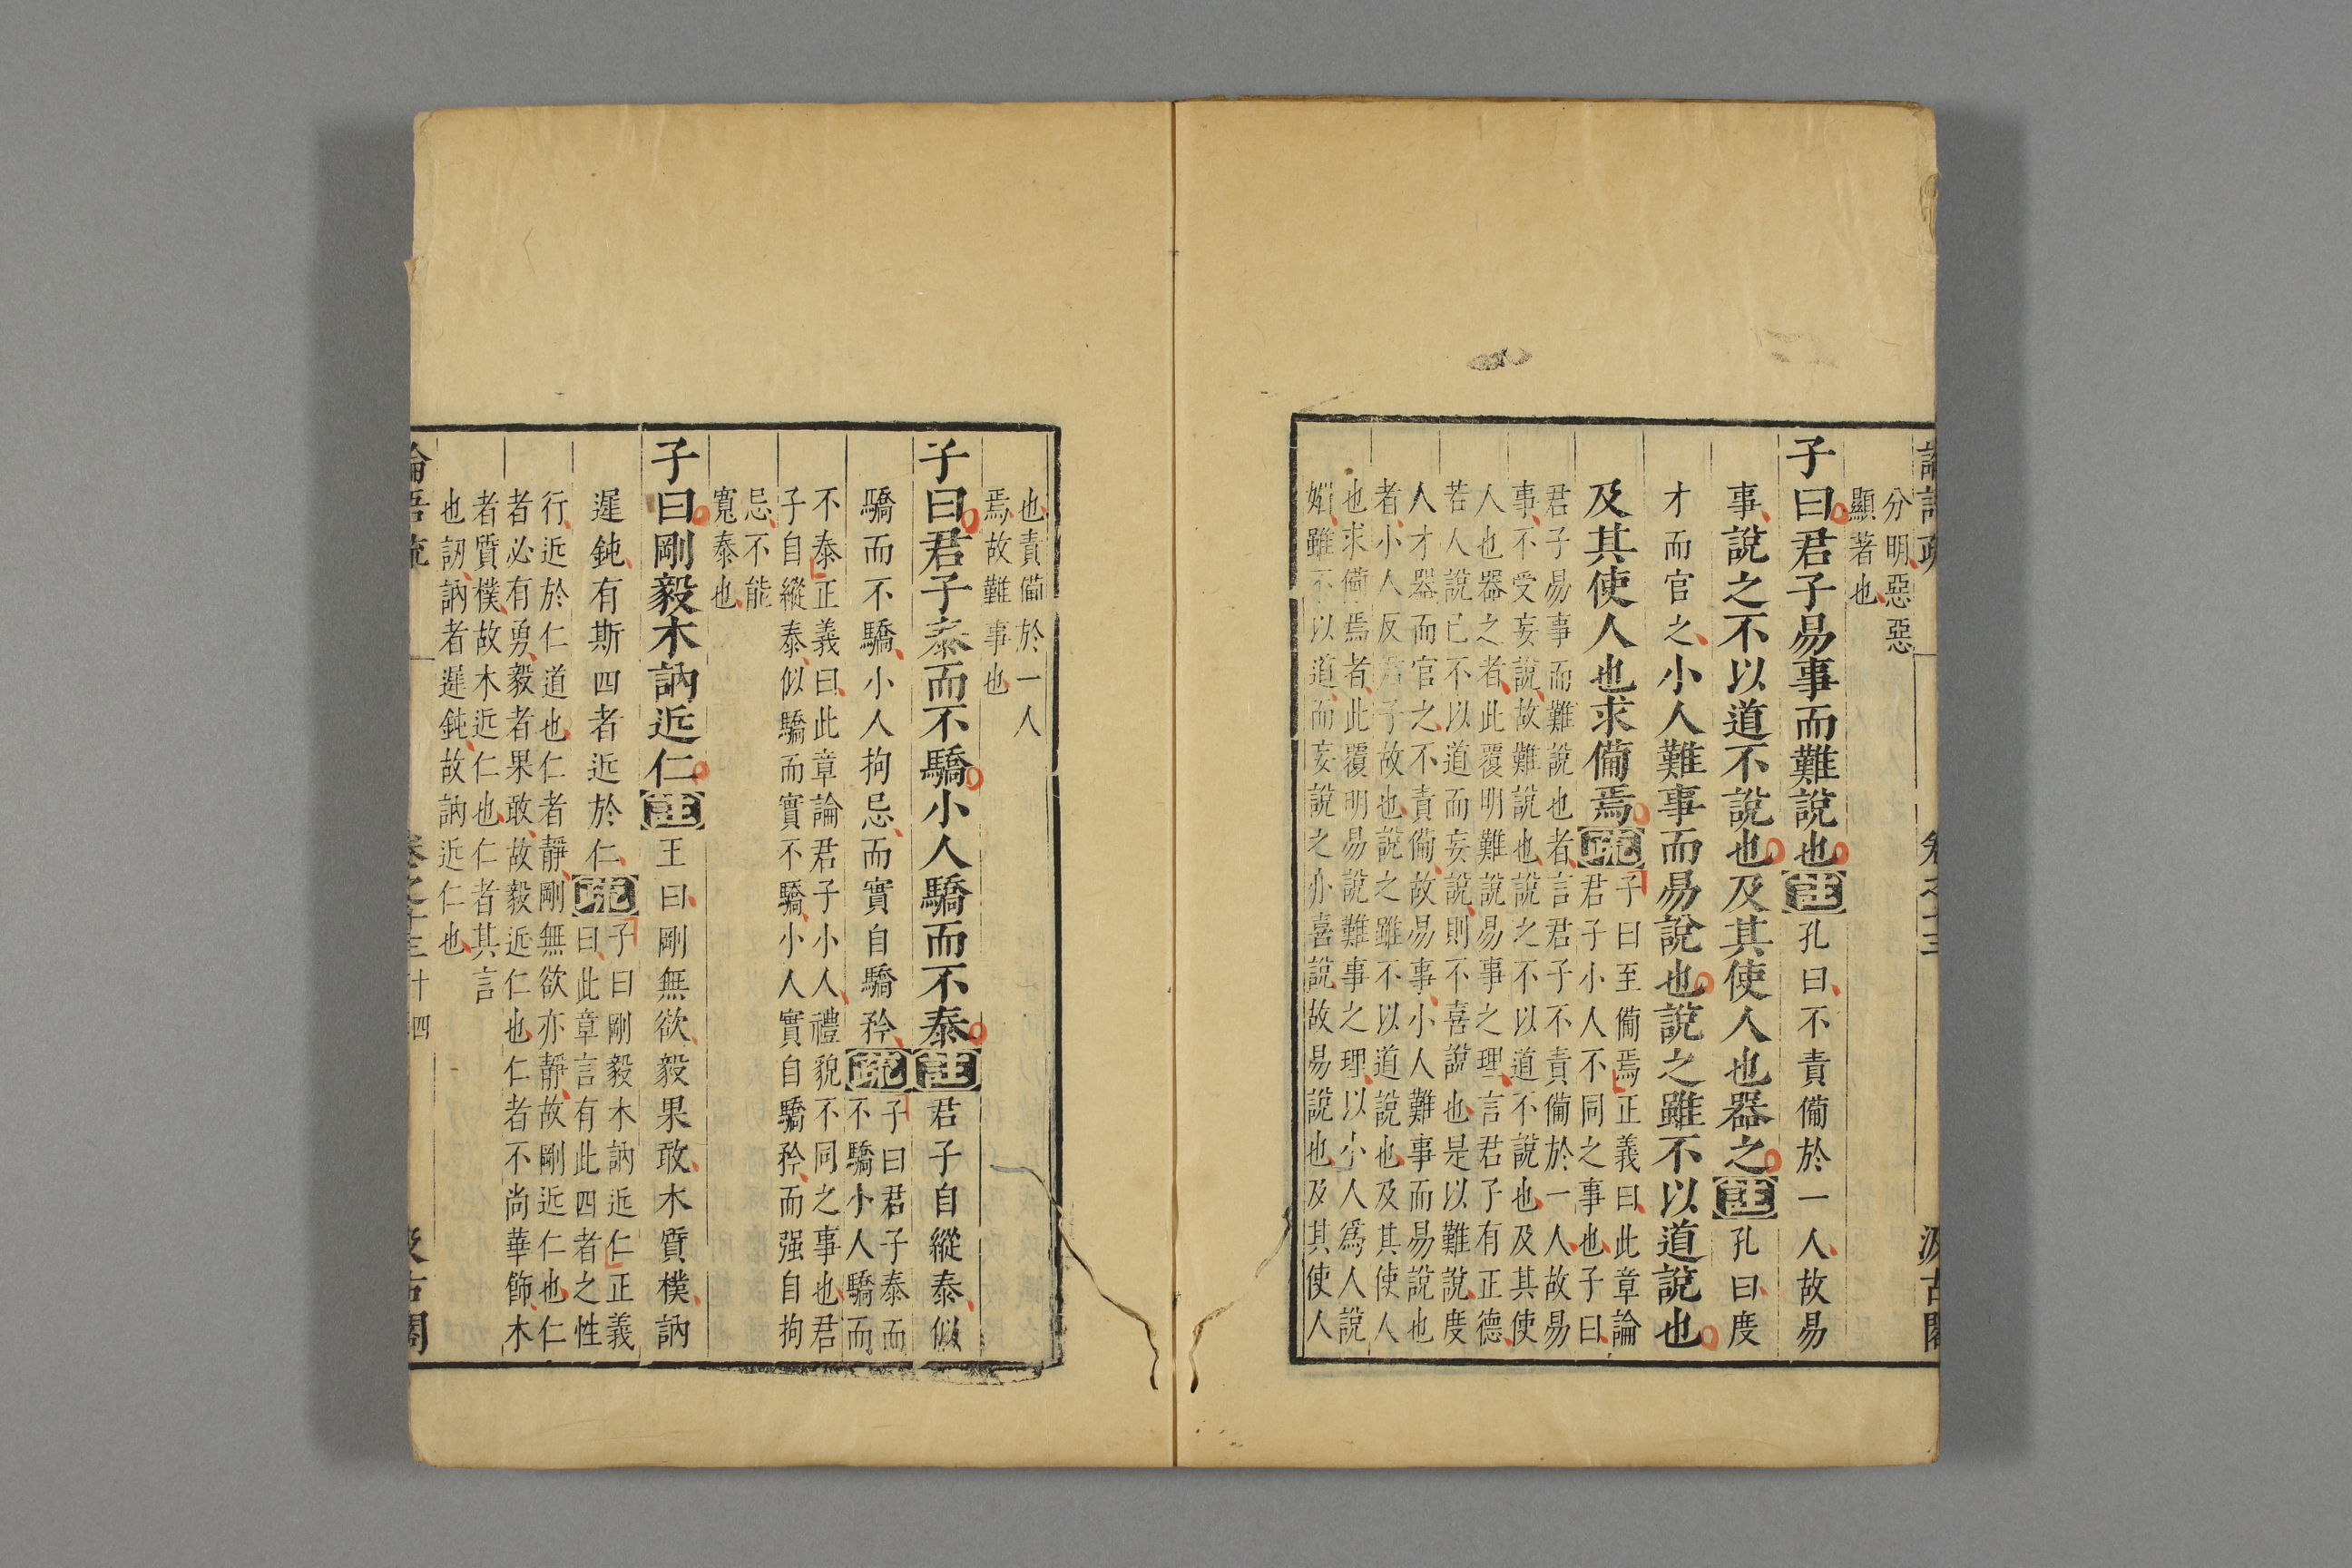 論語疏
卷之十三
汲古閣
分明惡惡
顯著也
子曰君子易事而難說也註孔曰不責備於一人故易
事說之不以道不說也及其使人也器之註孔曰度
才而官之小人難事而易說也說之雖不以道說也
及其使人也求備焉疏子曰至備焉正義曰此章論
君子小人不同之事也子曰
君子易事而難說也者言君子不責備於一人故易
事不受妄說故難說也說之不以道不說也及其使
人也器之者此覆明難說易事之理言君子有正德
若人說己不以道而妄說則不喜說也是以難說度
人才器而官之不責備故易事小人難事而易說也
者小人反君子故也說之雖不以道說也及其使人
也求備焉者此覆明易說難事之理以小人爲人說
媚雖不以道而妄說之亦喜說故易說也及其使人
也責備於一人
焉故難事也
子曰君子泰而不驕小人驕而不泰註君子自縱泰似
驕而不驕小人拘忌而實自驕矜疏子曰君子泰而
不驕小人驕而
不泰正義曰此章論君子小人禮貌不同之事也君
子自縱泰似驕而實不驕小人實自驕矜而强自拘
忌不能
寬泰也
子曰剛毅木訥近仁註王曰剛無欲毅果敢木質樸訥
遲鈍有斯四者近於仁疏子曰剛毅木訥近仁正義
曰此章言有此四者之性
行近於仁道也仁者靜剛無欲亦靜故剛近仁也仁
者必有勇毅者果敢故毅近仁也仁者不尚華飾木
者質樸故木近仁也仁者其言
也訒訥者遲鈍故訥近仁也
論語疏
卷之十三
十四
汲古閣